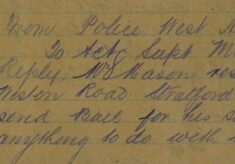 From Police West
To Actg Supt M
Reply. Mr Mason res
Weston Road Stratford
send Ball for his s
anything to do with